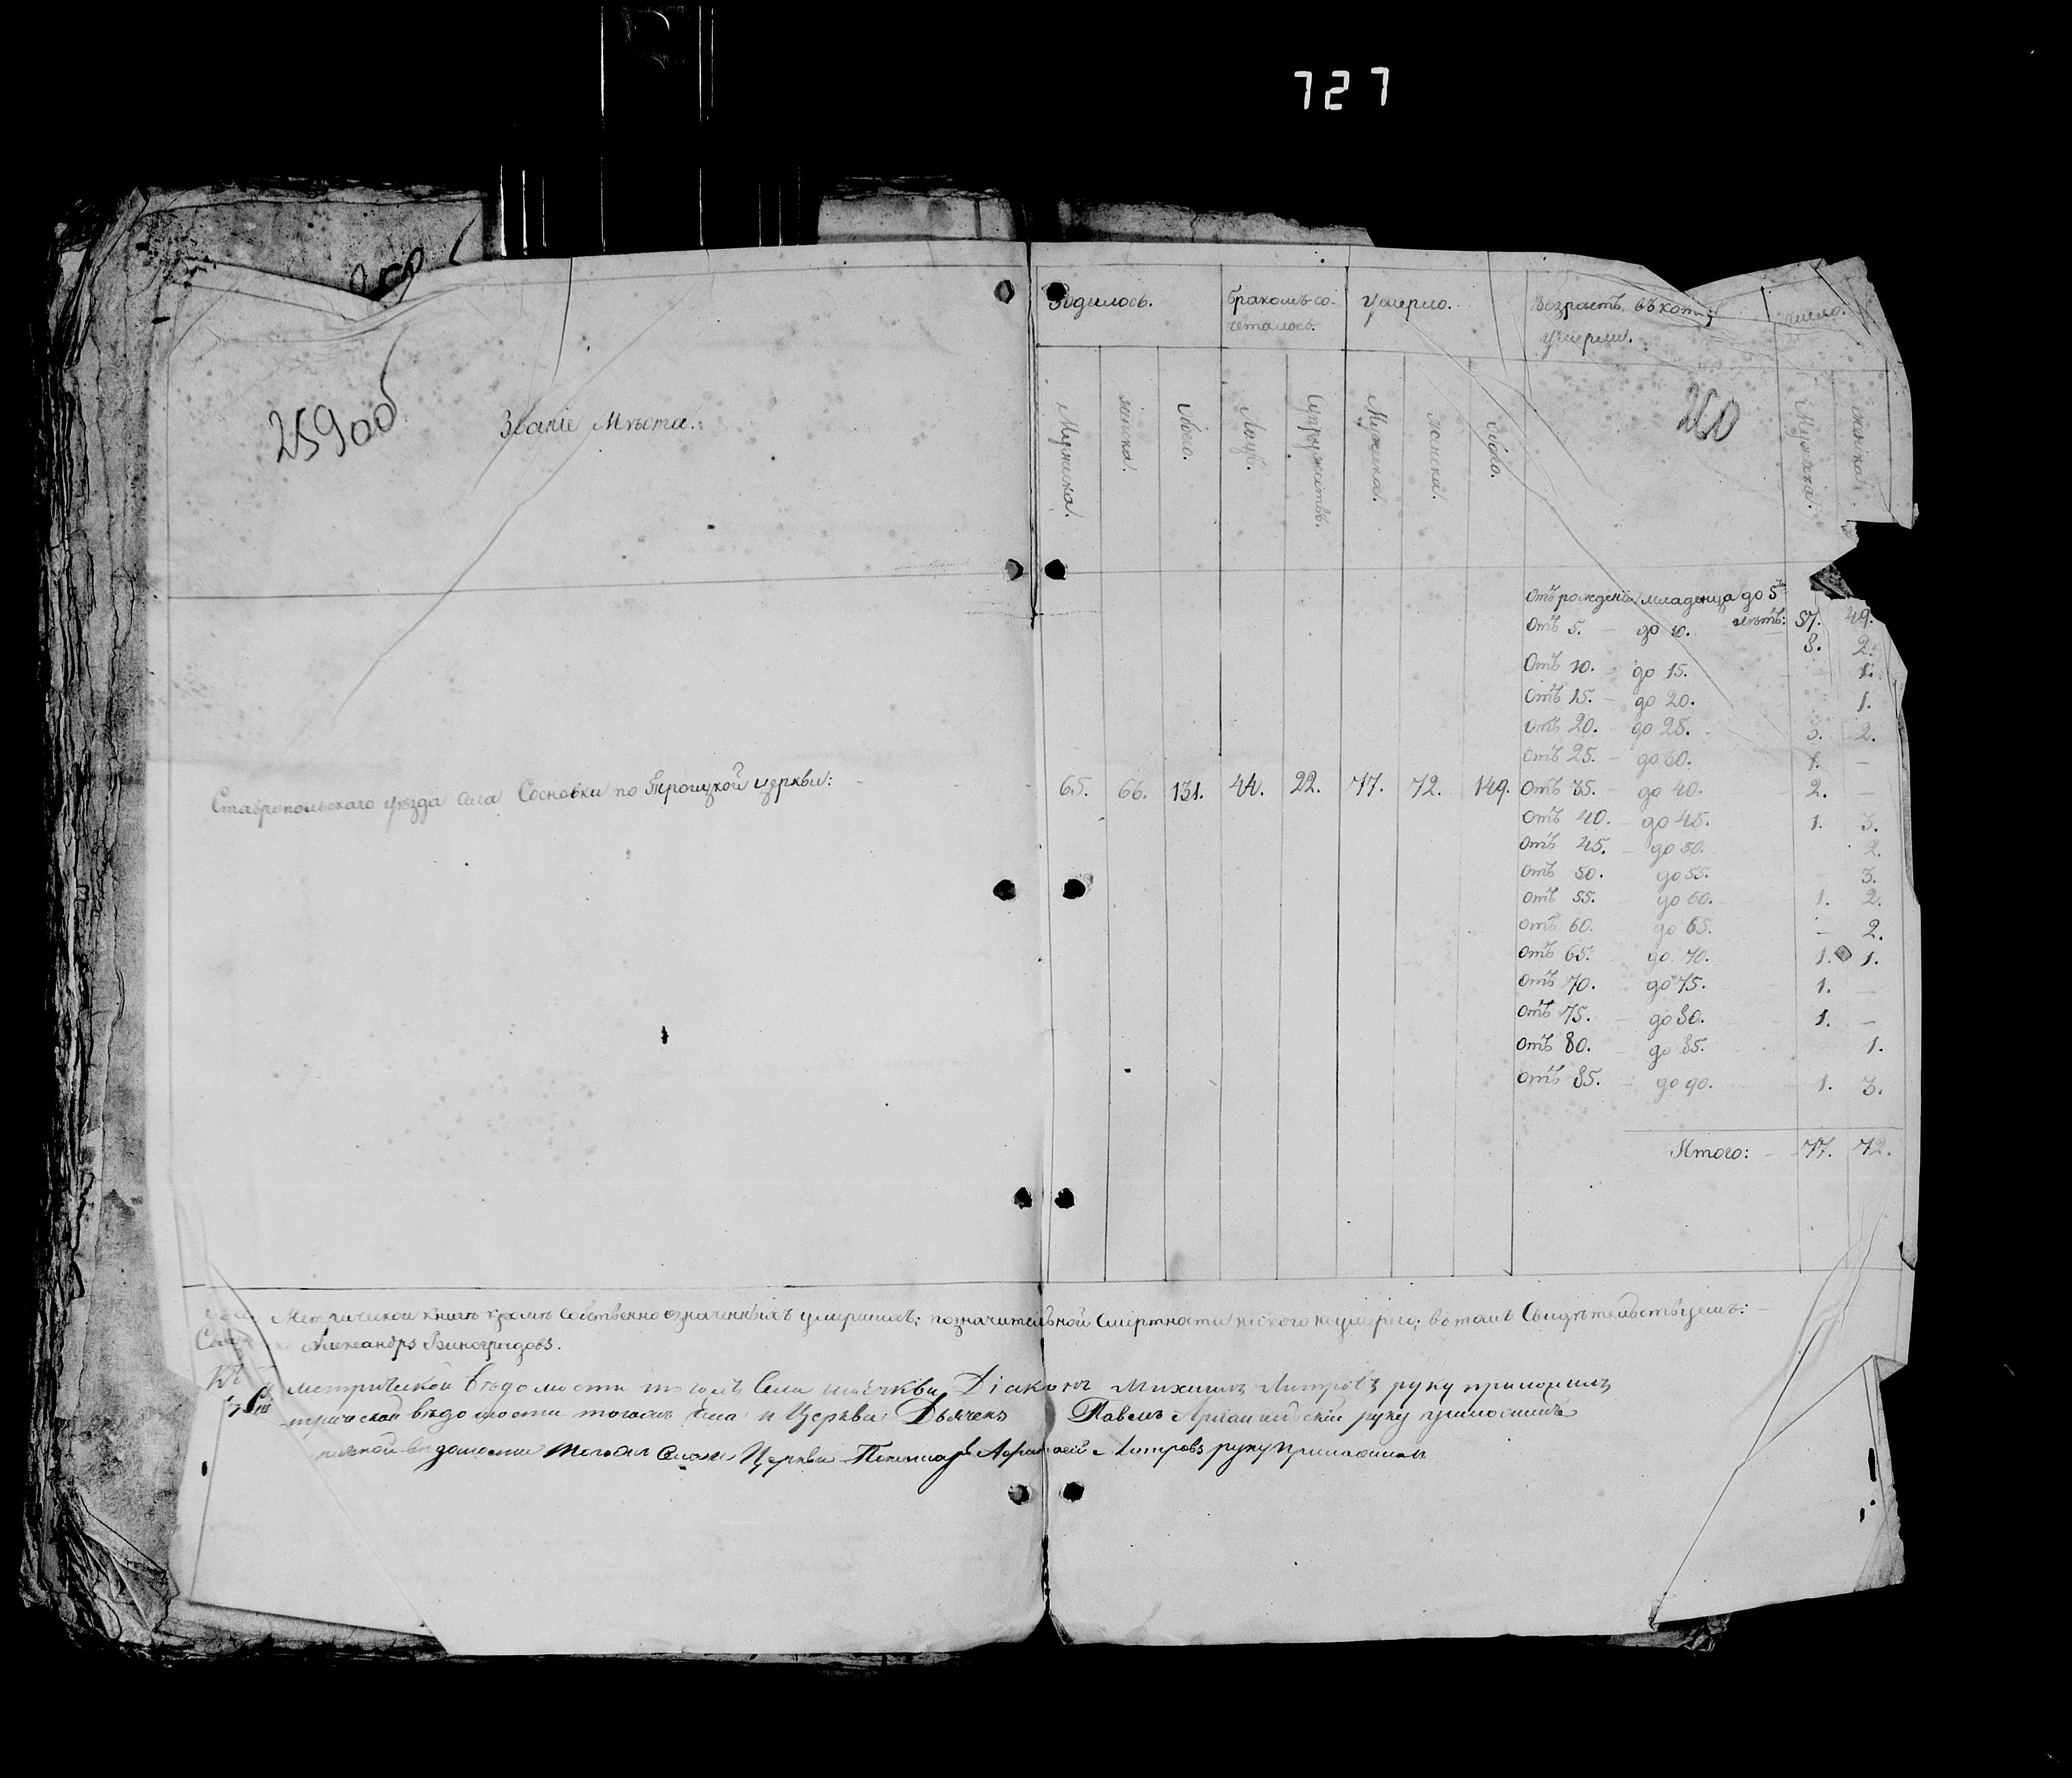 727
259 об
Званіе Мѣста.
Родилось.
бракомъ со-
четалось.
Умерло.
Возрастъ, въ кот:
умерли.
число.
260
Мужеска.
женска.
Обоего.
Лицъ.
Супружествъ.
Мужеска.
женска.
Обоего.
Мужеска.
женска.
Ставропольскаго уѣзда села Сосновки по Троицкой церкви: 65. 66. 131. 44. 22. 77. 72. 149.
Отъ рожденія младенца до 5ти
лѣтъ: 57. 49.
Отъ 5. до 10. 8. 2.
Отъ 10. до 15. 1.
Отъ 15. до 20. 1.
Отъ 20. до 25. 3. 2.
Отъ 25. до 30. 1. —
Отъ 35. до 40. 2. —
Отъ 40. до 45. 1. 3.
Отъ 45. до 50. 2.
Отъ 50. до 55. 3.
Отъ 55. до 60. 1. 2.
Отъ 60. до 65. — 2.
Отъ 65. до 70. 1. 1.
Отъ 70. до 75. 1. —
Отъ 75. до 80. 1. —
Отъ 80. до 85. 1.
Отъ 85. до 90. 1. 3.
Итого: 77. 72.
Метрической книгѣ кромѣ собственно означенныхъ умершихъ; по значительной смертности никого неумерло; въ томъ Свидѣтельствуемъ:
Александръ Виноградовъ.
метрической вѣдомости тогожъ Села и церкви Діаконъ Михаилъ руку приложилъ
вѣдомости тогожъ села и Церкви Дьячекъ Павелъ руку приложилъ
вѣдомости тогожъ села и Церкви Пономарь руку приложилъ